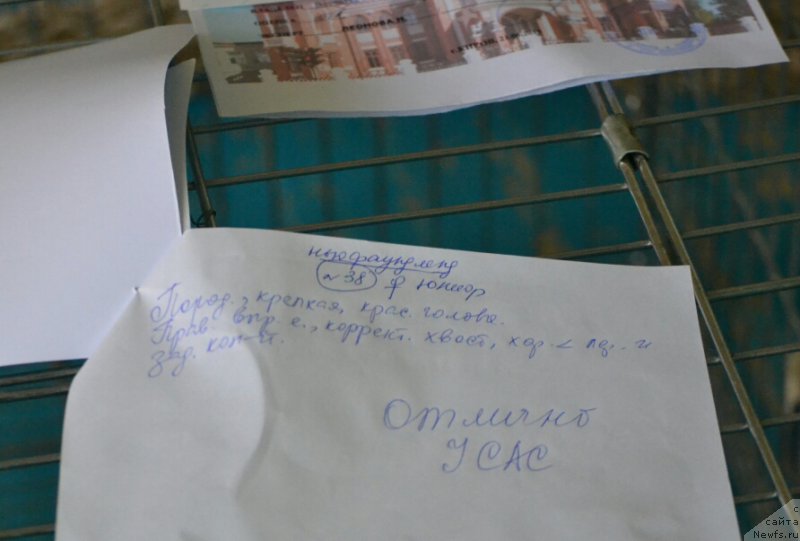 ЛЕОНОВА Н.
ньюфаундленд
№ 38 ♀ юниор
Пород., крепкая, крас. голова.
Прав. впр. с., коррект. хвост, хор. < пер. и
зад. кон-ти.
Отлично
JCAC
с
сайта
Newfs.ru